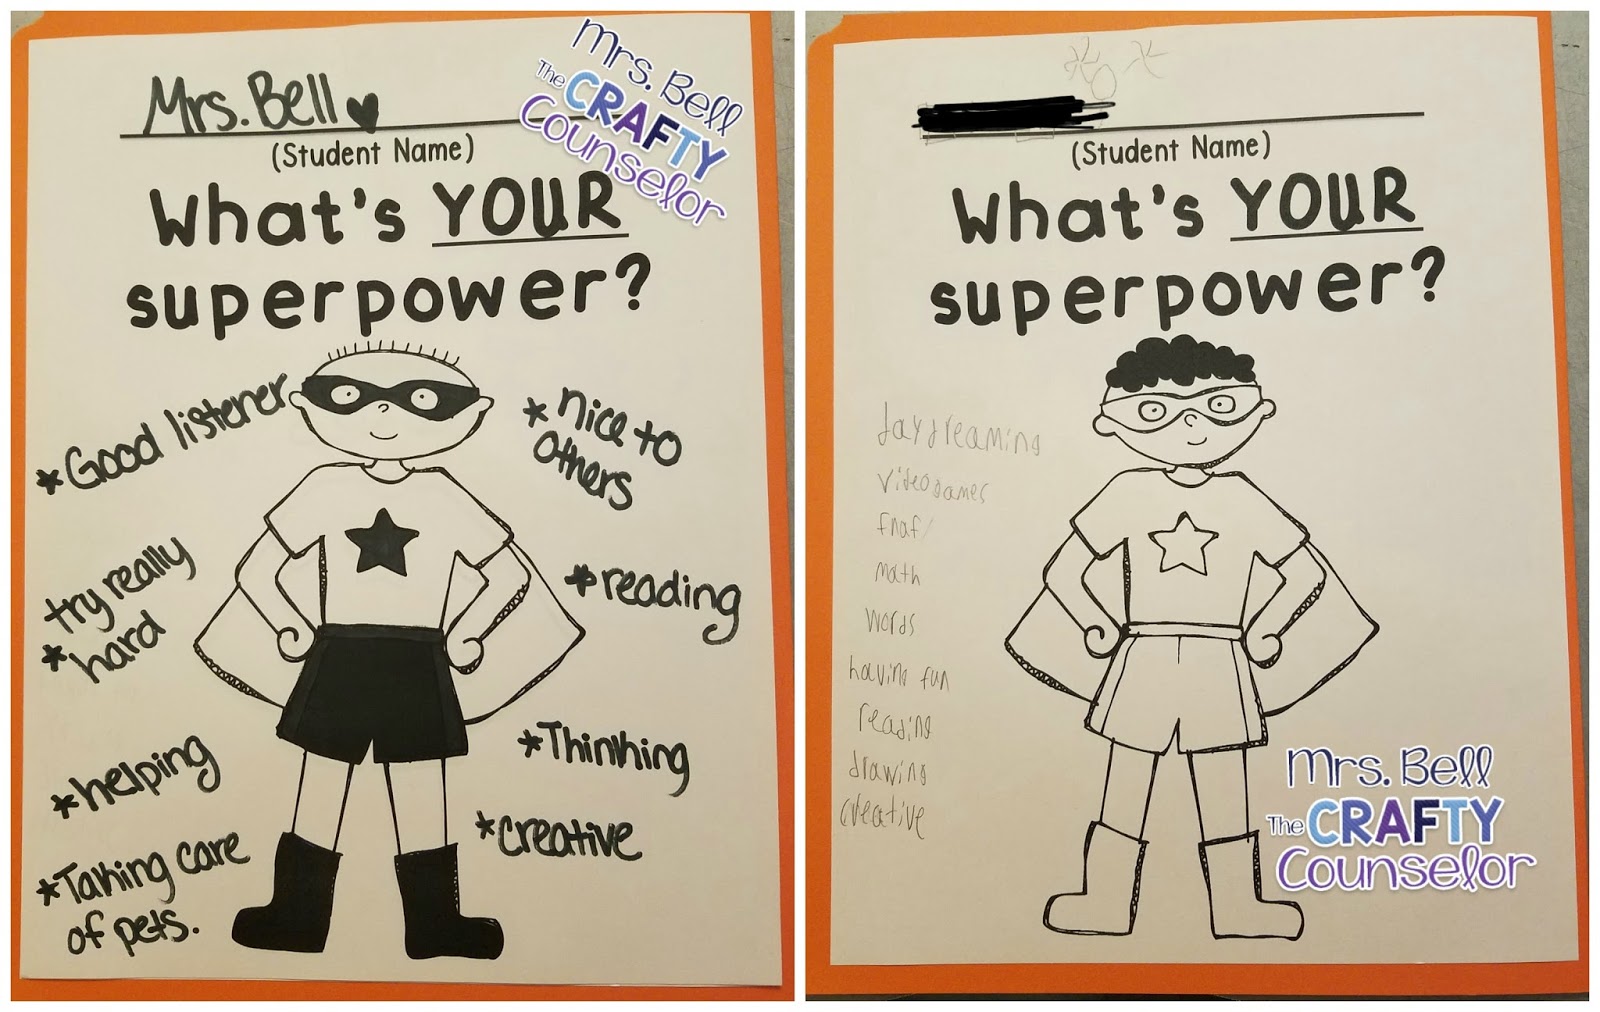 Mrs. Bell
(Student Name)
What's YOUR
superpower?
*Good listener
try really
*hard
*helping
*Taking care
of pets.
*nice to
others
*reading
*Thinking
*creative
Mrs. Bell
The CRAFTY
Counselor
(Student Name)
What's YOUR
superpower?
daydreaming
videogames
fnaf
math
words
having fun
reading
drawing
creative
Mrs. Bell
The CRAFTY
Counselor